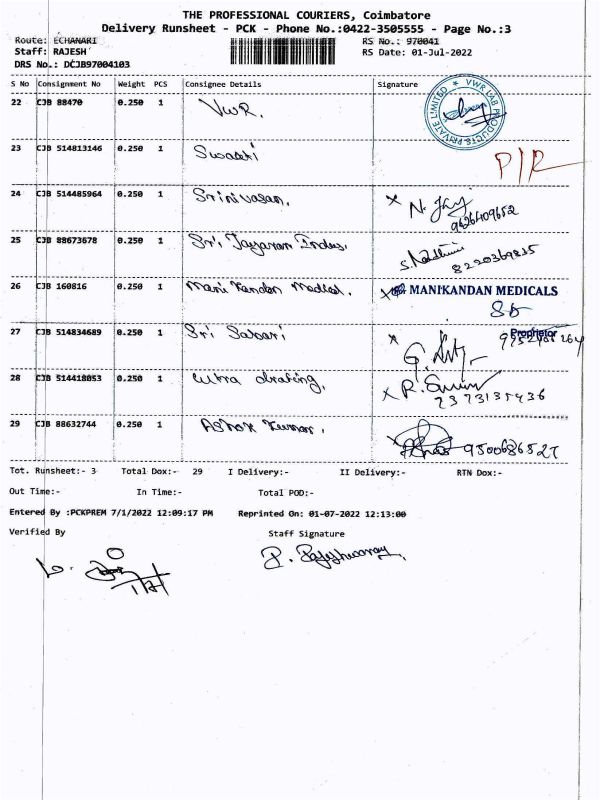 THE PROFESSIONAL COURIERS, Coimbatore
Delivery Runsheet - PCK - Phone No.:0422-3505555 - Page No.:3
Route: ECHANARI RS No.: 970041
Staff: RAJESH RS Date: 01-Jul-2022
DRS No.: DCJB97004103
S No Consignment No Weight PCS Consignee Details Signature
22 CJB 88470 0.250 1 VWR. VWR LAB PRODUCTS PRIVATE LIMITED
23 CJB 514813146 0.250 1 P/R
24 CJB 514485964 0.250 1 Srinivasan. N. Jay
9626409652
25 CJB 88673678 0.250 1 Sri Jayaram Indus.
8220369835
26 CJB 160816 0.250 1 Mani Kandan Medical. MANIKANDAN MEDICALS
Proprietor
27 CJB 514834689 0.250 1 Sri Sabari
28 CJB 514418053 0.250 1 Ultra drafing, R.
2373135436
29 CJB 88632744 0.250 1 Ashok Kumar. 9500686527
Tot. Runsheet:- 3 Total Dox:- 29 I Delivery:- II Delivery:- RTN Dox:-
Out Time:- In Time:- Total POD:-
Entered By :PCKPREM 7/1/2022 12:09:17 PM Reprinted On: 01-07-2022 12:13:00
Verified By Staff Signature